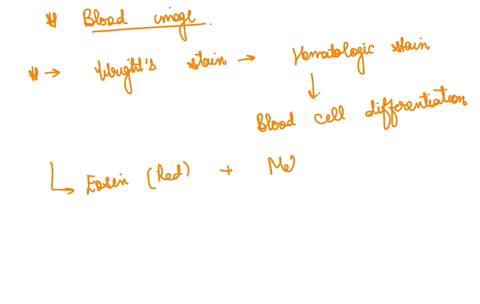 # Blood image
# → Wright's stain → Hematologic stain
↓
Blood cell differentiation
↳ Eosin (Red) + Me